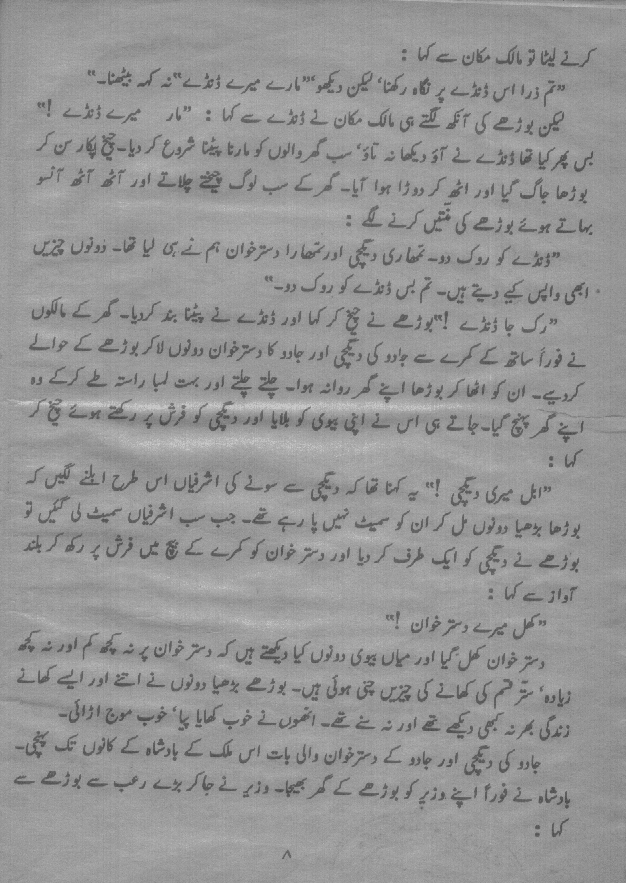 کرنے لیٹا تو مالک مکان سے کہا :
”تم ذرا اس ڈنڈے پر نگاہ رکھنا‘ لیکن دیکھو‘ ”مارے میرے ڈنڈے“ نہ کہہ بیٹھنا۔“
لیکن بوڑھے کی آنکھ لگتے ہی مالک مکان نے ڈنڈے سے کہا : ”مار میرے ڈنڈے !“
بس پھر کیا تھا ڈنڈے نے آؤ دیکھا نہ تاؤ‘ سب گھر والوں کو مارنا پیٹنا شروع کر دیا۔ چیخ پکار سن کر
بوڑھا جاگ گیا اور اٹھ کر دوڑا ہوا آیا۔ گھر کے سب لوگ چیختے چلاتے اور آٹھ آٹھ آنسو
بہاتے ہوئے بوڑھے کی منّتیں کرنے لگے :
”ڈنڈے کو روک دو۔ تمھاری دیگچی اور تمھارا دسترخوان ہم نے ہی لیا تھا۔ دونوں چیزیں
ابھی واپس کیے دیتے ہیں۔ تم بس ڈنڈے کو روک دو۔“
”رک جا ڈنڈے !“ بوڑھے نے چیخ کر کہا اور ڈنڈے نے پیٹنا بند کر دیا۔ گھر کے مالکوں
نے فوراً ساتھ کے کمرے سے جادو کی دیگچی اور جادو کا دسترخوان دونوں لا کر بوڑھے کے حوالے
کر دیے۔ ان کو اٹھا کر بوڑھا اپنے گھر روانہ ہوا۔ چلتے چلتے اور بہت لمبا راستہ طے کرکے وہ
اپنے گھر پہنچ گیا۔ جاتے ہی اس نے اپنی بیوی کو بلایا اور دیگچی کو فرش پر رکھتے ہوئے چیخ کر
کہا :
”ابل میری دیگچی !“ یہ کہنا تھا کہ دیگچی سے سونے کی اشرفیاں اس طرح ابلنے لگیں کہ
بوڑھا بڑھیا دونوں مل کر ان کو سمیٹ نہیں پا رہے تھے۔ جب سب اشرفیاں سمیٹ لی گئیں تو
بوڑھے نے دیگچی کو ایک طرف کر دیا اور دستر خوان کو کمرے کے بیچ میں فرش پر رکھ کر بلند
آواز سے کہا :
”کھل میرے دستر خوان !“
دستر خوان کھل گیا اور میاں بیوی دونوں کیا دیکھتے ہیں کہ دستر خوان پر نہ کچھ کم اور نہ کچھ
زیادہ‘ ستّر قسم کی کھانے کی چیزیں چنی ہوئی ہیں۔ بوڑھے بڑھیا دونوں نے اتنے اور ایسے کھانے
زندگی بھر نہ کبھی دیکھے تھے اور نہ سنے تھے۔ انھوں نے خوب کھایا پیا‘ خوب موج اڑائی۔
جادو کی دیگچی اور جادو کے دسترخوان والی بات اس ملک کے بادشاہ کے کانوں تک پہنچی۔
بادشاہ نے فوراً اپنے وزیر کو بوڑھے کے گھر بھیجا۔ وزیر نے جا کر بڑے رعب سے بوڑھے سے
کہا :
۸